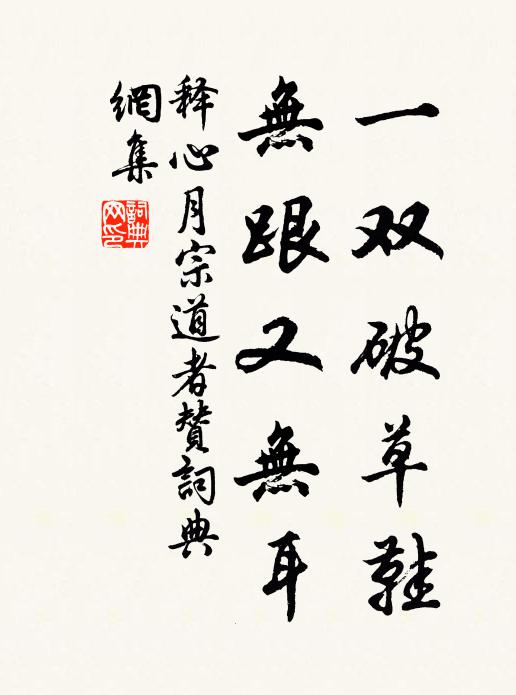 一双破草鞋
無跟又無耳
释心月宗道者贊詞典
網集
詞典網印